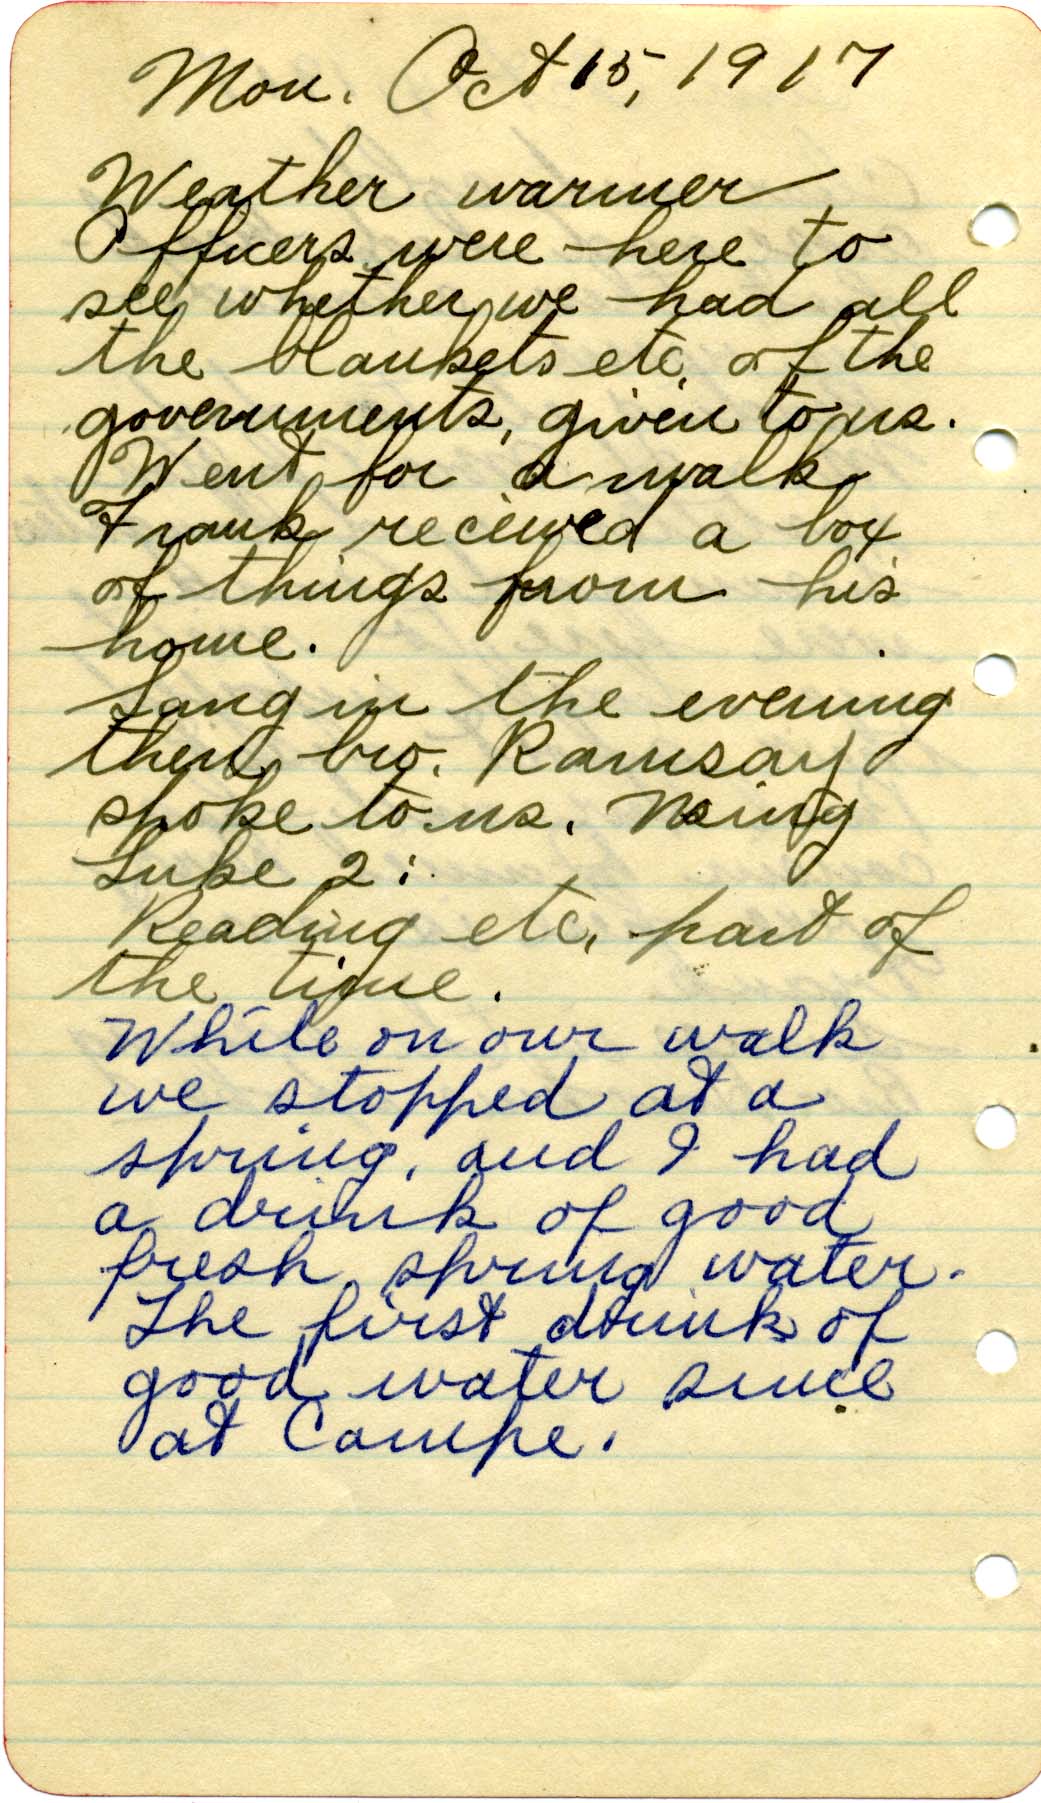 Mon. Oct 15, 1917
Weather warmer
Officers were here to
see whether we had all
the blankets etc. of the
governments, given to us.
Went for a walk
Frank received a box
of things from his
home.
Sang in the evening
then bro. Ramsay
spoke to us. Using
Luke 2:
Reading etc. part of
the time.
While on our walk
we stopped at a
spring, and I had
a drink of good
fresh spring water.
The first drink of
good water since
at Campe.